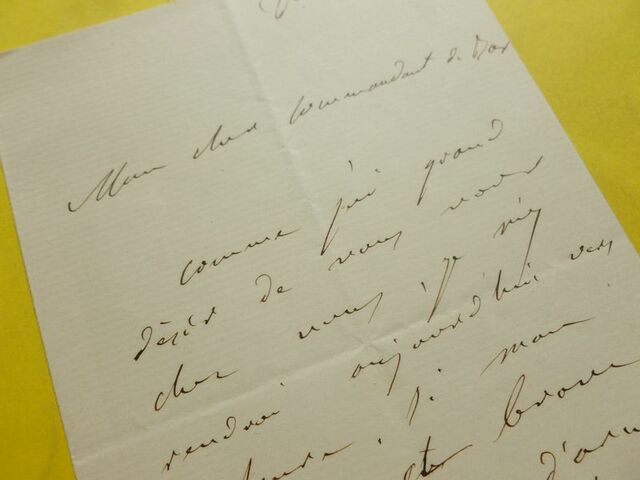 Mon cher commandant de
comme j'ai grand
désir de vous voir
chez vous, je m'y
rendrai aujourd'hui vers
heure. Si mon
brave